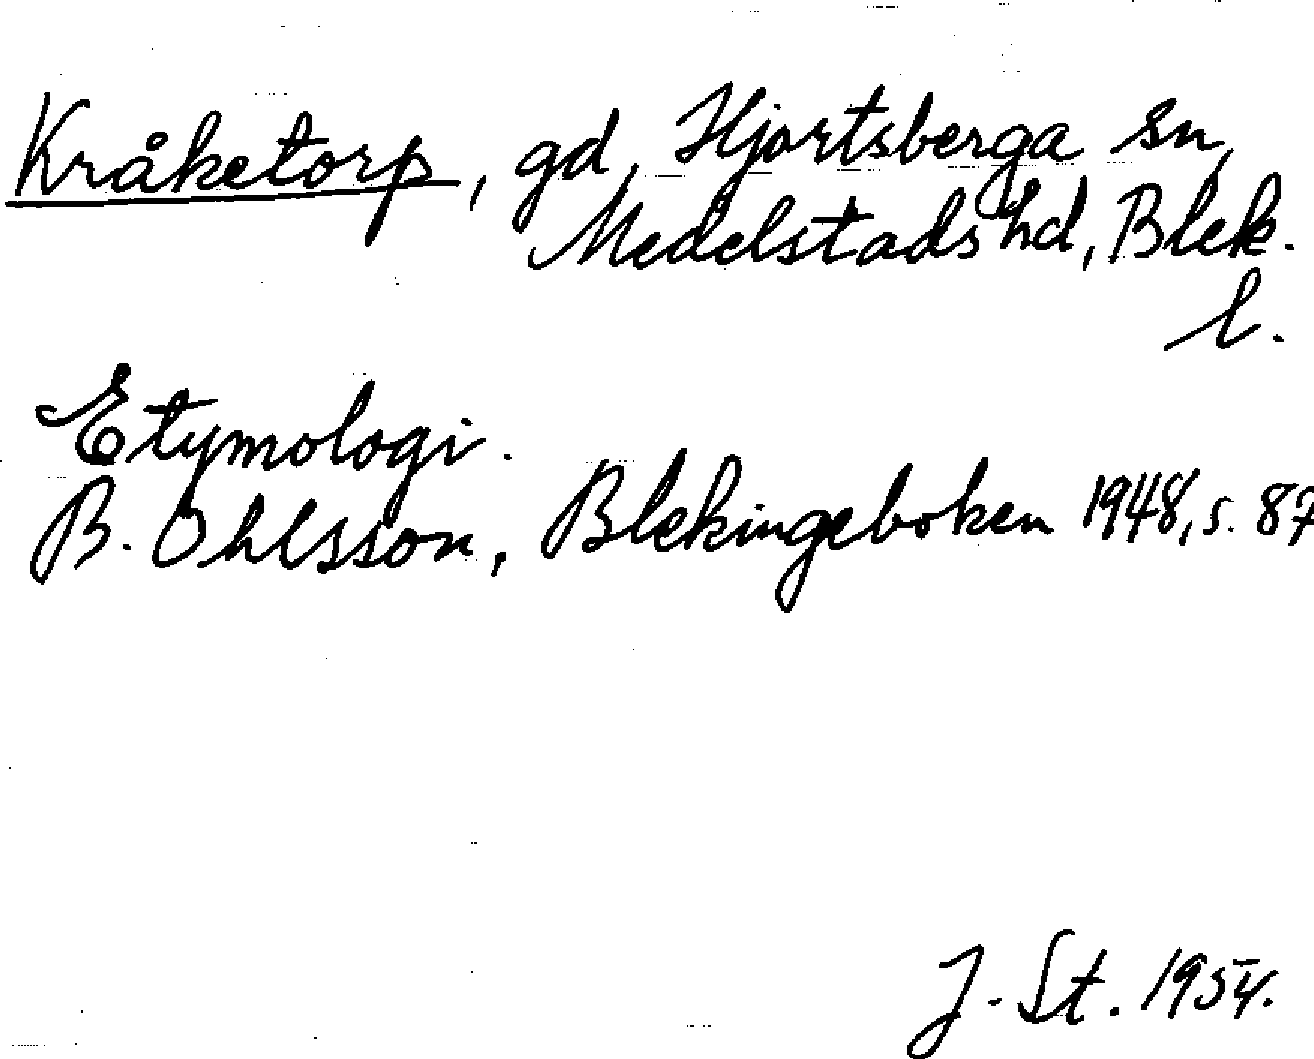 Kråketorp, gd, Hjortsberga sn,
Medelstads hd, Blek.
l.
Etymologi.
B. Ohlsson, Blekingeboken 1948, s. 87
J. St. 1954.